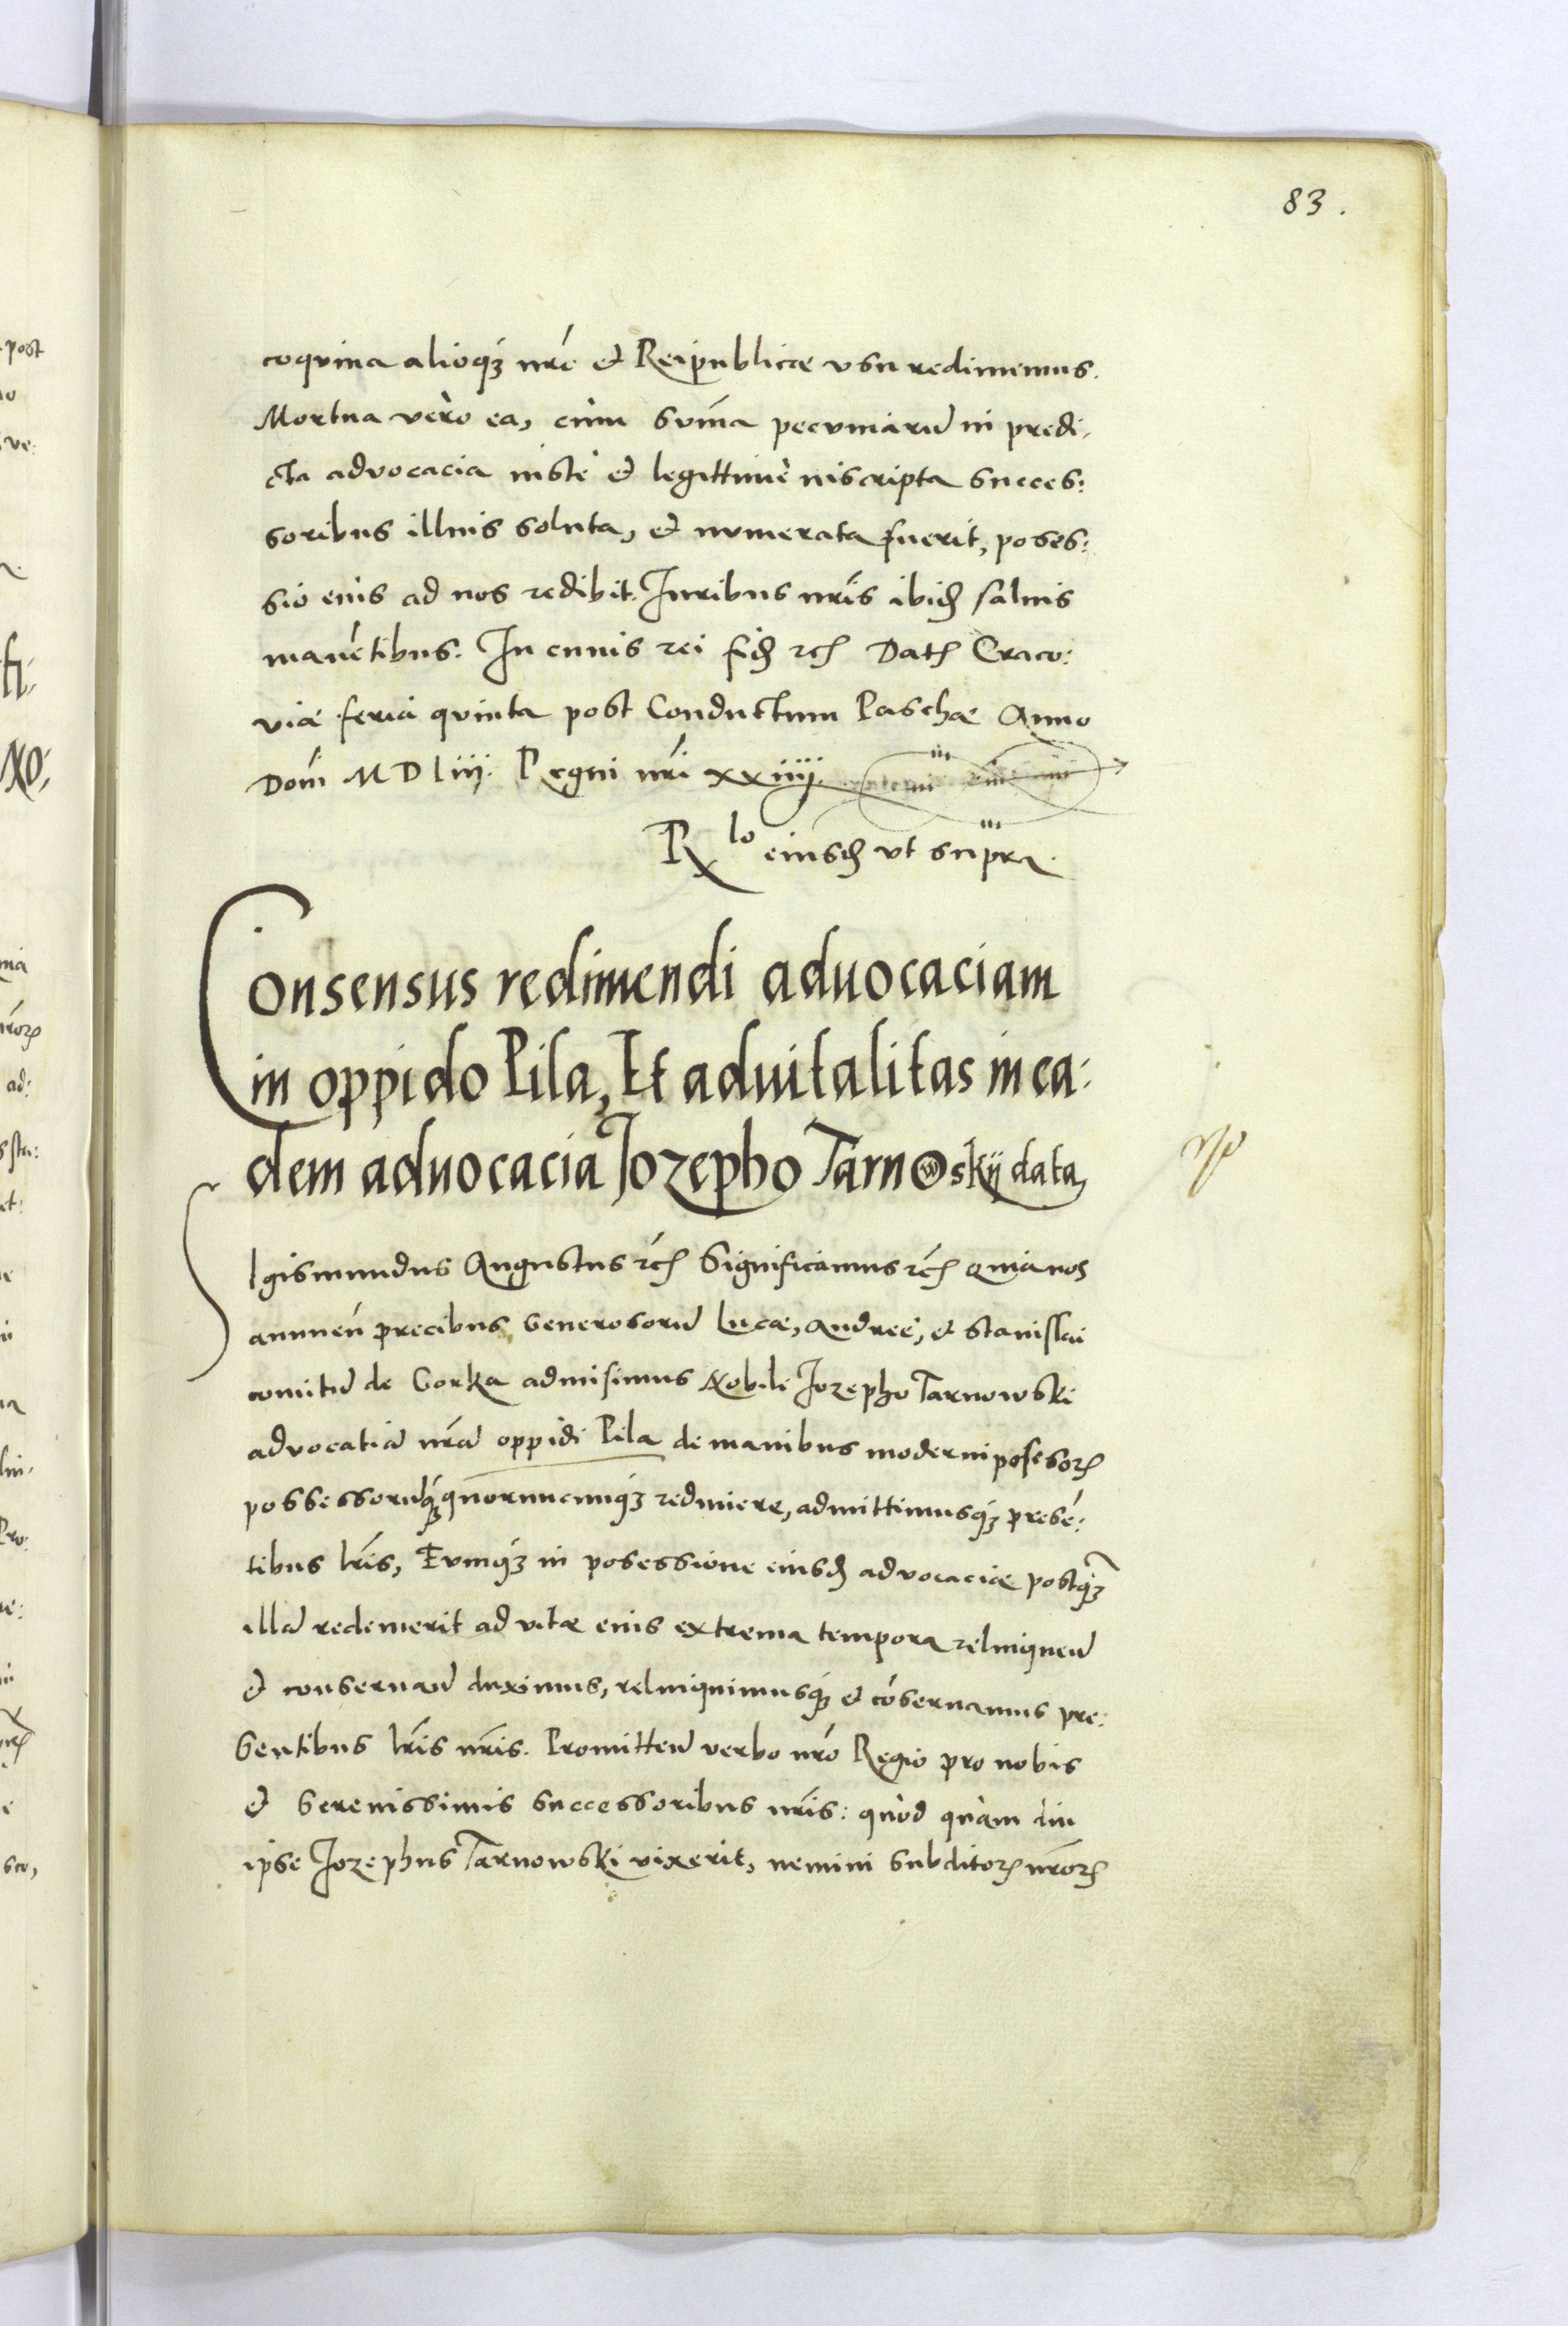 83.
coquina alioqz nrẽ et Reipublicæ vsu redimemus.
Mortua vero ea, cum suma pecuniarũ in predi,
cta advocacia iuste et legittime inscripta succes:
soribus illius soluta, et numerata fuerit, poses:
sio eius ad nos redibit. Iuribus nrĩs ibidẽ saluis
manẽtibus. In cuius rei fidẽ rcꝭ Datꝭ Craco:
viæ feria quinta post Conductum Paschæ Anno
Domĩ MDLiij. Regni nrĩ xxiiij.
Rlo eiusdẽ vt supra.
Consensus redimendi aduocaciam
in oppido Pila, Et aduitalitas in ea:
dem aduocacia Jozepho Tarnowskij data,
Sigismundus Augustus rcꝭ Significamus rcꝭ Quia nos
annuẽn precibus Generosorũ Lucæ, Andreæ, et Stanislai
comitũ de Gorka admisimus Nobili Jozepho Tarnowski
advocatiã nrãm oppidi Pila de manibus moderni posesorꝭ
possessorũqz quorumcunqz redimere, admittimusqz presẽ:
tibus lrĩs, Eumqz in posessione eiusdẽ advocaciæ postqz
illã redemerit ad vitæ eius extrema tempora relinqueñ
et conseruañ duximus, relinquimusqz et cõseruamus pre:
sentibus lrĩs nrĩs. Promitteñ verbo nrõ Regio pro nobis
et Serenissimis Successoribus nrĩs: quod quam diu
ipse Jozephus Tarnowski vixerit, nemini subditorꝭ nrõrꝭ